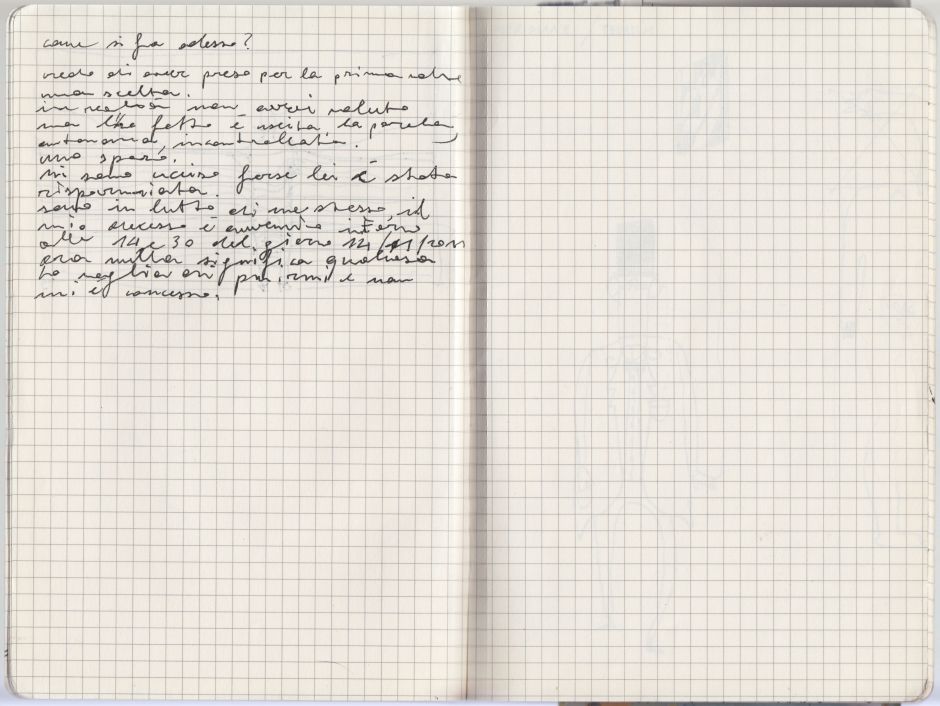 come si fa adesso?
credo di aver preso per la prima volta
una scelta.
in realtà non avrei voluto
ma l'ho fatto è uscita, la parola,
autonoma, incontrollata.
uno sparo.
mi sono ucciso forse lei è stata
risparmiata.
sono in lutto di me stesso, il
mio decesso è avvenuto intorno
alle 14 e 30 del giorno 12/11/2011
ora nulla significa qualcosa
ho voglia di punirmi e non
mi è concesso.